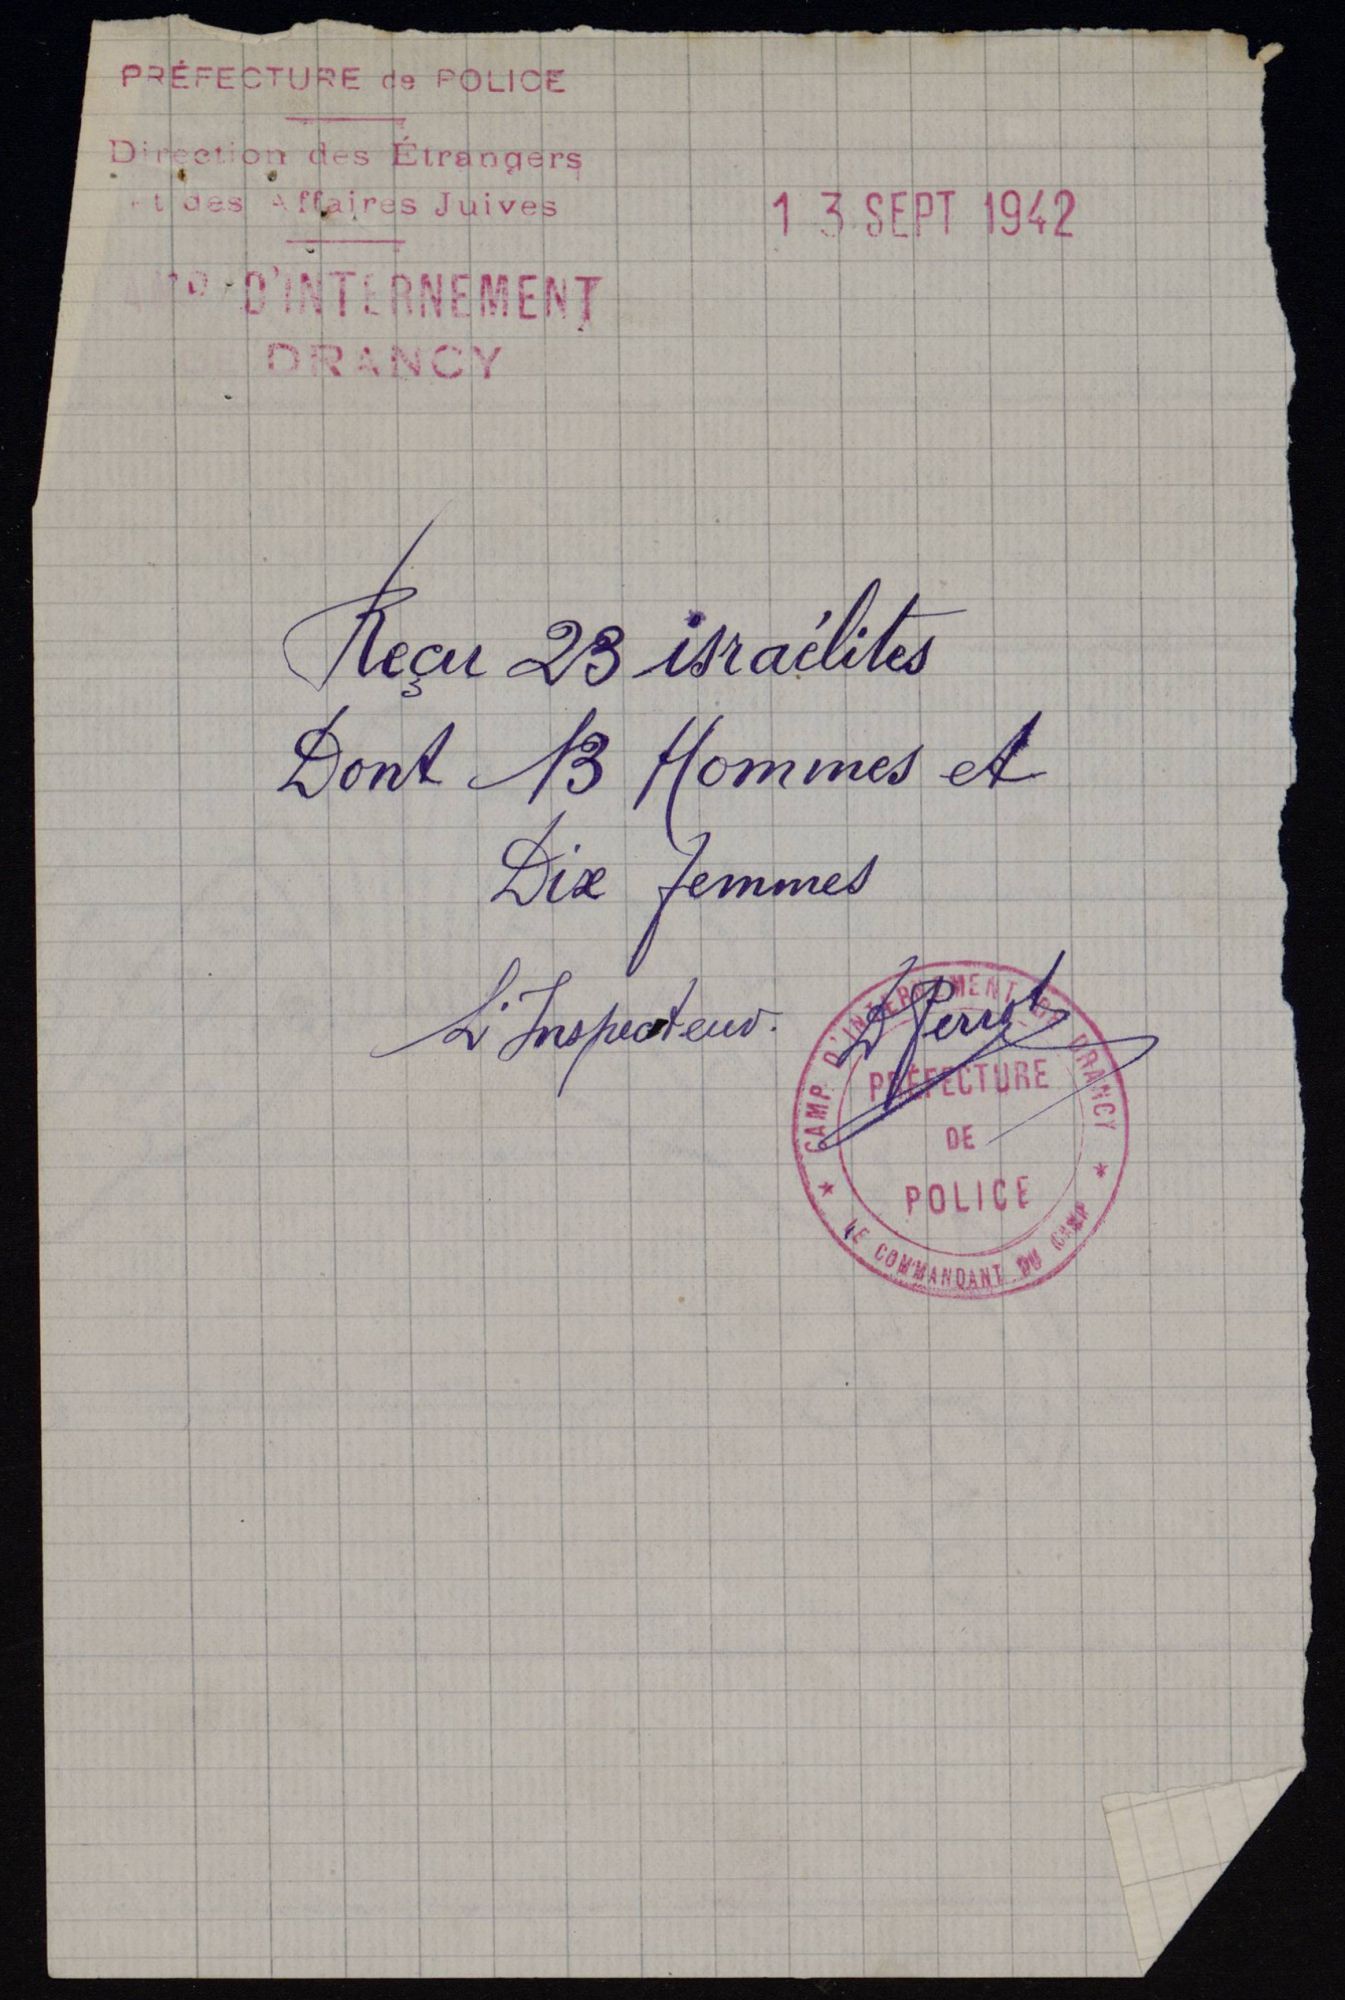 PRÉFECTURE de POLICE
Direction des Étrangers
et des Affaires Juives
13 SEPT 1942
CAMP D'INTERNEMENT
DE DRANCY
Reçu 23 israélites
Dont 13 Hommes et
Dix femmes
L'Inspecteur.
CAMP D'INTERNEMENT DE DRANCY
PRÉFECTURE
DE
POLICE
* LE COMMANDANT DU CAMP *